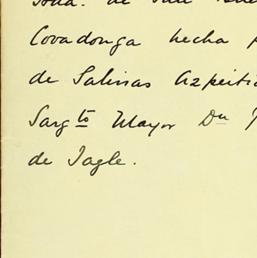 de San
Covadonga hecha p
de Salinas Azpeiti
Sargto Mayor Dn
de Tagle.